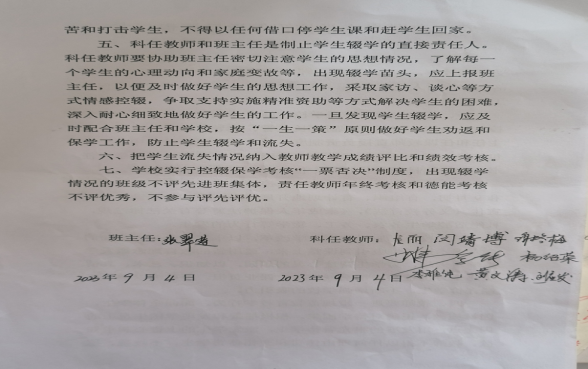 苦和打击学生，不得以任何借口停学生课和赶学生回家。
五、科任教师和班主任是制止学生辍学的直接责任人。
科任教师要协助班主任密切注意学生的思想情况，了解每一
个学生的心理动向和家庭变故等，出现辍学苗头，应上报班
主任，以便及时做好学生的思想工作，采取家访、谈心等方
式情感控辍，争取支持实施精准资助等方式解决学生的困难，
深入耐心细致地做好学生的工作。一旦发现学生辍学，应及
时配合班主任和学校，按“一生一策”原则做好学生劝返和
保学工作，防止学生辍学和流失。
六、把学生流失情况纳入教师教学成绩评比和绩效考核。
七、学校实行控辍保学考核“一票否决”制度，出现辍学
情况的班级不评先进班集体，责任教师年终考核和德能考核
不评优秀，不参与评先评优。
班主任：张翠 科任教师： 闵琦博
杨绍荣
黄文涛
2023年9月4日 2023年9月4日